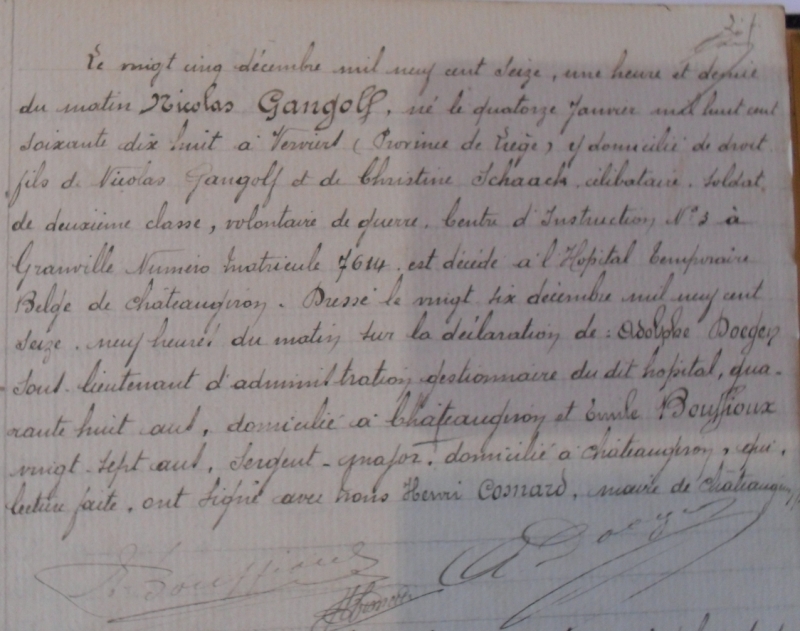 Le vingt cinq décembre mil neuf cent seize, une heure et demie
du matin Nicolas Gangolf, né le quatorze Janvier mil huit cent
soixante dix huit à Verviers (Province de Liège) y domicilié de droit
fils de Nicolas Gangolf et de Christine Schaack, célibataire. Soldat
de deuxième classe, volontaire de guerre. Centre d'Instruction N° 3 à
Granville Numéro matricule 7614. est décédé à l'Hopital temporaire
Belge de châteaugiron. Dressé le vingt six décembre mil neuf cent
seize. neuf heures du matin sur la déclaration de : Adolphe Doegen
sous-lieutenant d'administration gestionnaire du dit hopital, qua-
rante huit ans, domicilié à Châteaugiron et Emile Bouffioux
vingt-sept ans, Sergent-major. domicilié à châteaugiron, qui,
lecture faite, ont signé avec nous Henri Cosnard, maire de châteaugiron
Bouffioux
A Doegen